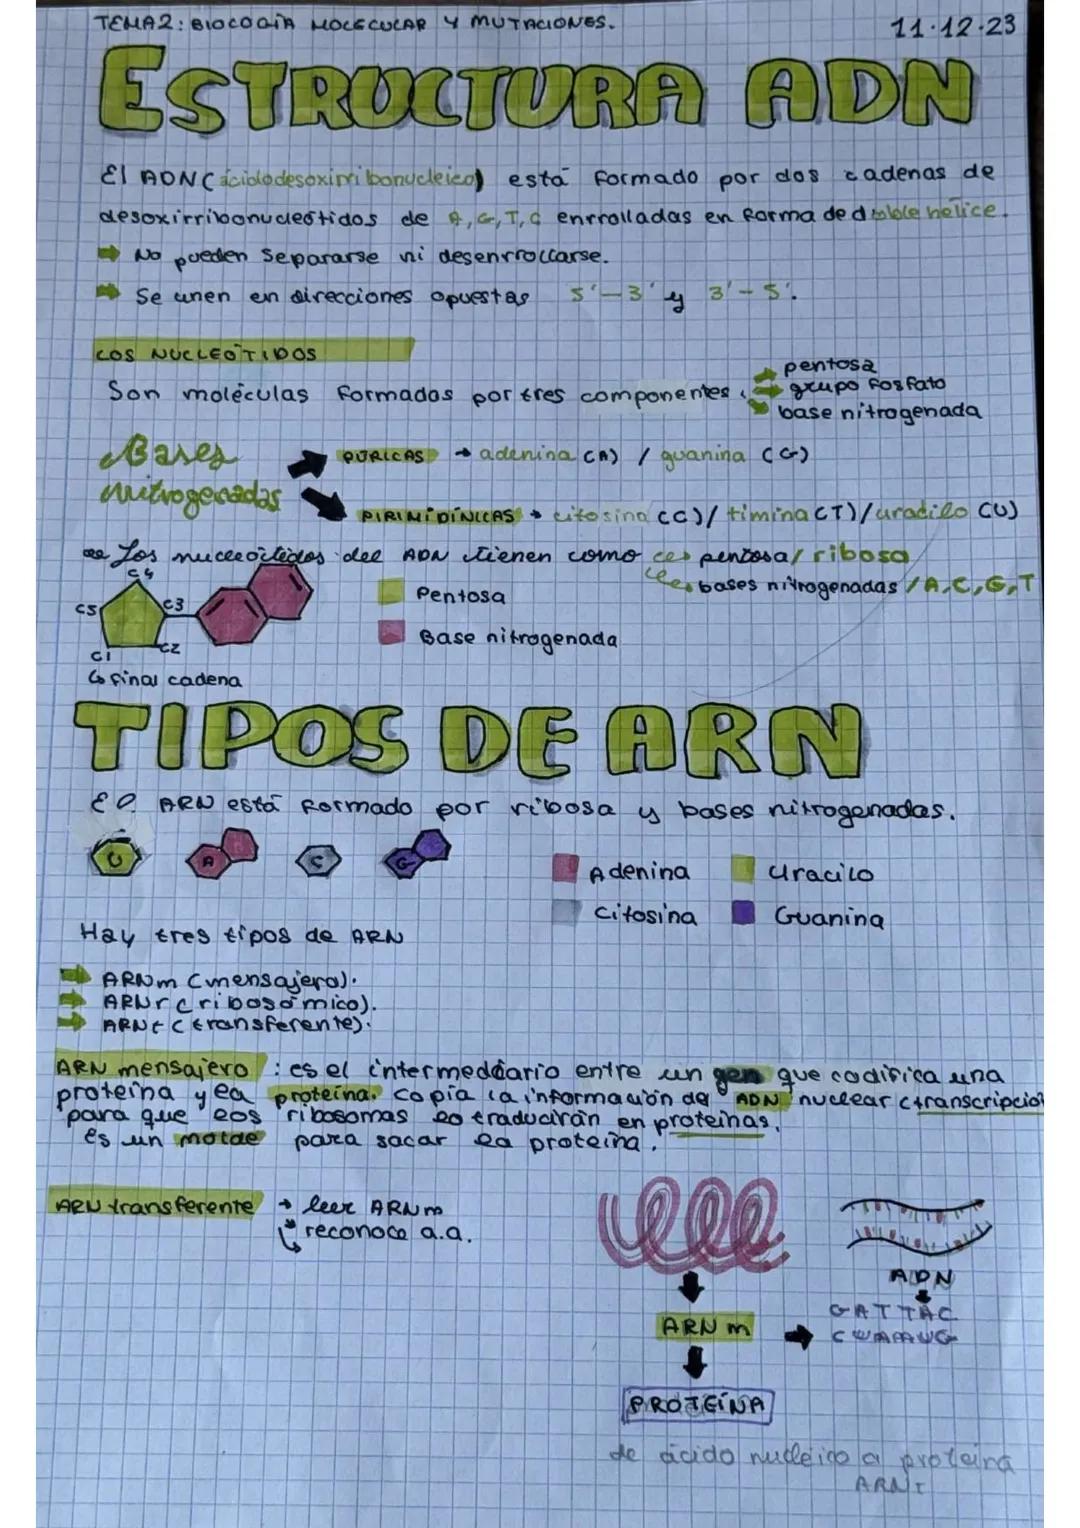 TEMA2: BIOLOGÍA MOLECULAR Y MUTACIONES. 11·12·23
ESTRUCTURA ADN
El ADN (ácido desoxirribonucleico) está formado por dos cadenas de
desoxirribonucleótidos de A, G, T, C enrrolladas en forma de doble hélice.
No pueden separarse ni desenrrollarse.
Se unen en direcciones opuestas 5'-3' y 3'-5'.
LOS NUCLEÓTIDOS
Son moléculas formadas por tres componentes
pentosa
grupo fosfato
base nitrogenada
Bases nitrogenadas
PÚRICAS → adenina (A) / guanina (G)
PIRIMIDÍNICAS → citosina (C) / timina (T) / uracilo (U)
Los nucleótidos del ADN tienen como pentosa / ribosa
bases nitrogenadas / A, C, G, T
C4
C5
C3
C1
C2
Pentosa
Base nitrogenada
final cadena
TIPOS DE ARN
El ARN está formado por ribosa y bases nitrogenadas.
U A C G
Adenina Uracilo
Citosina Guanina
Hay tres tipos de ARN
ARNm (mensajero).
ARNr (ribosómico).
ARNt (transferente).
ARN mensajero: es el intermediario entre un gen que codifica una
proteína y la proteína. Copia la información del ADN nuclear (transcripción
para que los ribosomas lo traducirán en proteínas.
es un molde para sacar la proteína.
ARN transferente → leer ARNm
reconoce a.a.
ADN
GATTAC
CUAAUG
ARN m
PROTEÍNA
de ácido nucleico a proteína